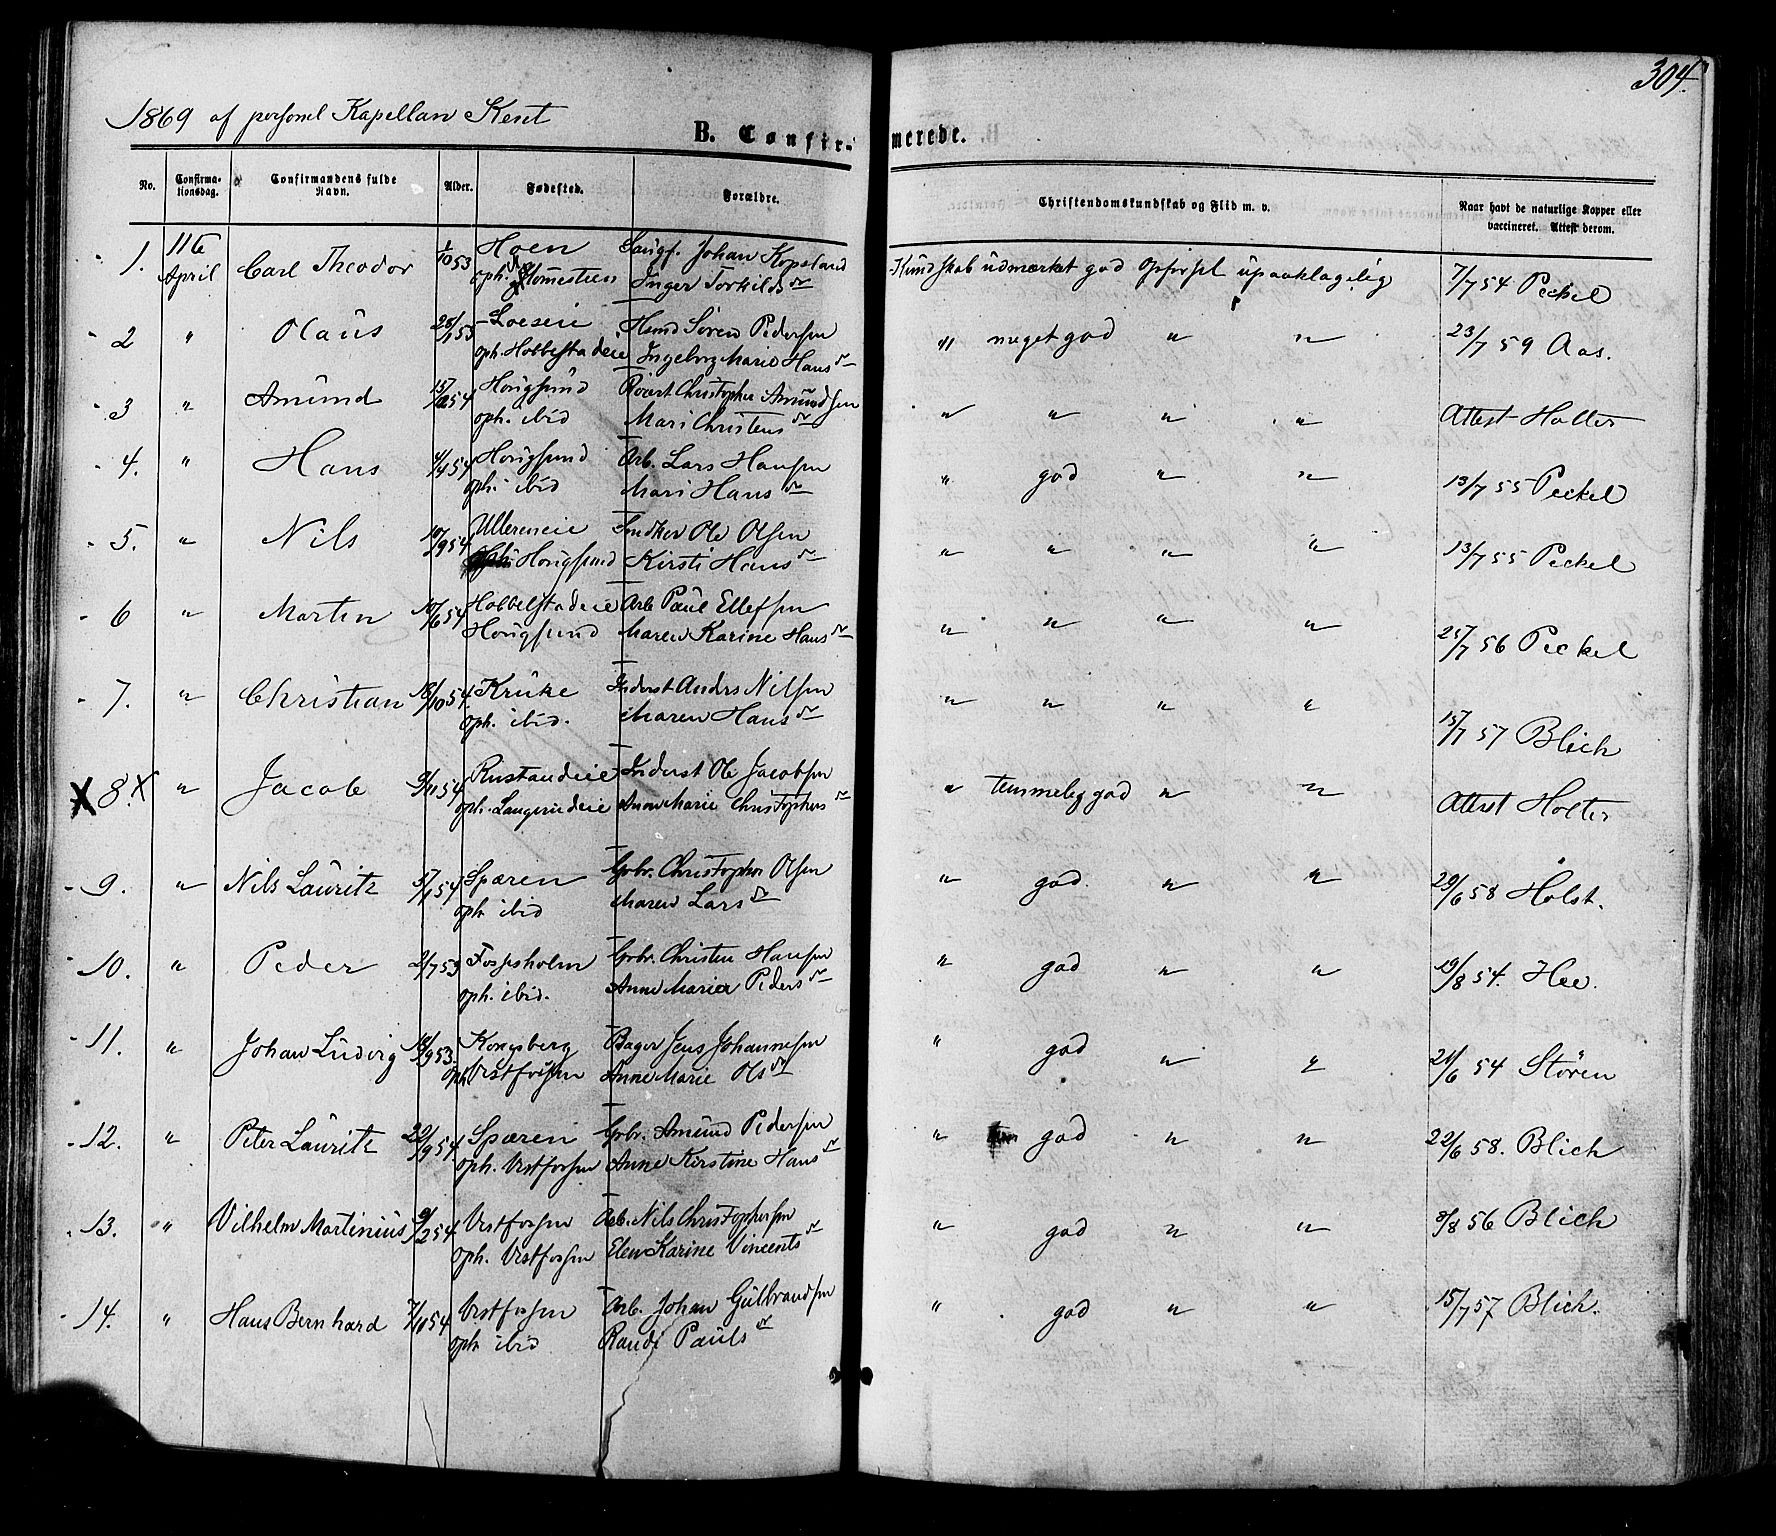 304.
1869 af personel Kapellan Kent
B. Confir- merede.
No. Confirma-tionsdag. Confirmandens fulde Navn. Alder. Fødested. Forældre. Christendomskundskab og Flid m. v. Naar havt de naturlige Kopper eller vaccineret. Attest derom.
1. 11te April Carl Theodor 1/10 53 Hoen Johan Kopsland Kundskab udmærket god Opførsel upaaklagelig 7/7 54 Peckel
oph. Inger Torkilds dr
2 " Olaus 28/1 53 Loeseie Søren Pedersen " meget god " " 23/7 59 Aas.
oph. Hobbelstadeie Ingeborg Marie Hans dr
3 " Amund 54 Hougsund Christopher Amundsen " " " " Attest Holter
oph. ibid Mari Christens dr
4. " Hans 4/4 54 Hougsund Arb. Lars Hansen " god " " 13/7 55 Peckel
oph. ibid Mari Hans dr
5. " Nils 19/9 54 Ullereneie Ole Olsen " " " " 13/7 55 Peckel
Hougsund Kirsti Hans dr
6 " Martin 10/6 54 Hobbelstadeie Arb Paul Ellefsen " " " " 25/7 56 Peckel
Hougsund Maren Karine Hans dr
7. " Christian 18/10 54 Kruke Inderst Anders Nilsen " " " " 15/7 57 Blich
oph. ibid. Maren Hans dr
X 8. X " Jacob 9/11 54 Rustandeie Inderst Ole Jacobsen " temmelig god " " Attest Holter
oph. Langerudeie Anne Marie Christophers dr
9. " Nils Lauritz 5/1 54 Spæren Gbr. Christopher Olsen " god. " " 29/6 58 Holst.
oph ibid Maren Lars dr
10. " Peder 2/7 53 Fossesholm Gbr. Christen Hansen " god " " 19/8 54. Hee.
oph. ibid. Anne Maria Peders dr
11. " Johan Ludvig 18/9 53. Kongsberg Bager Jens Johannesen " god " " 21/6 54 Stören
oph Vestfossen Anne Marie Ols dr
12. " Peter Lauritz 22/9 54. Spæren Gbr. Amund Pedersen " god " " 22/6 58. Blich
oph. Vestfossen Anne Kirstine Hans dr
13. " Vilhelm Martinius 9/2 54 Vestfossen Arb. Nils Christophersen " god " " 8/8 56 Blich
oph. Vestfossen Elen Karine Vincents dr
14. " Hans Bernhard 7/11 54 Vestfossen Arb. Johan Gulbrandsen " god " " 15/7 57 Blich.
oph ibid Randi Pauls dr